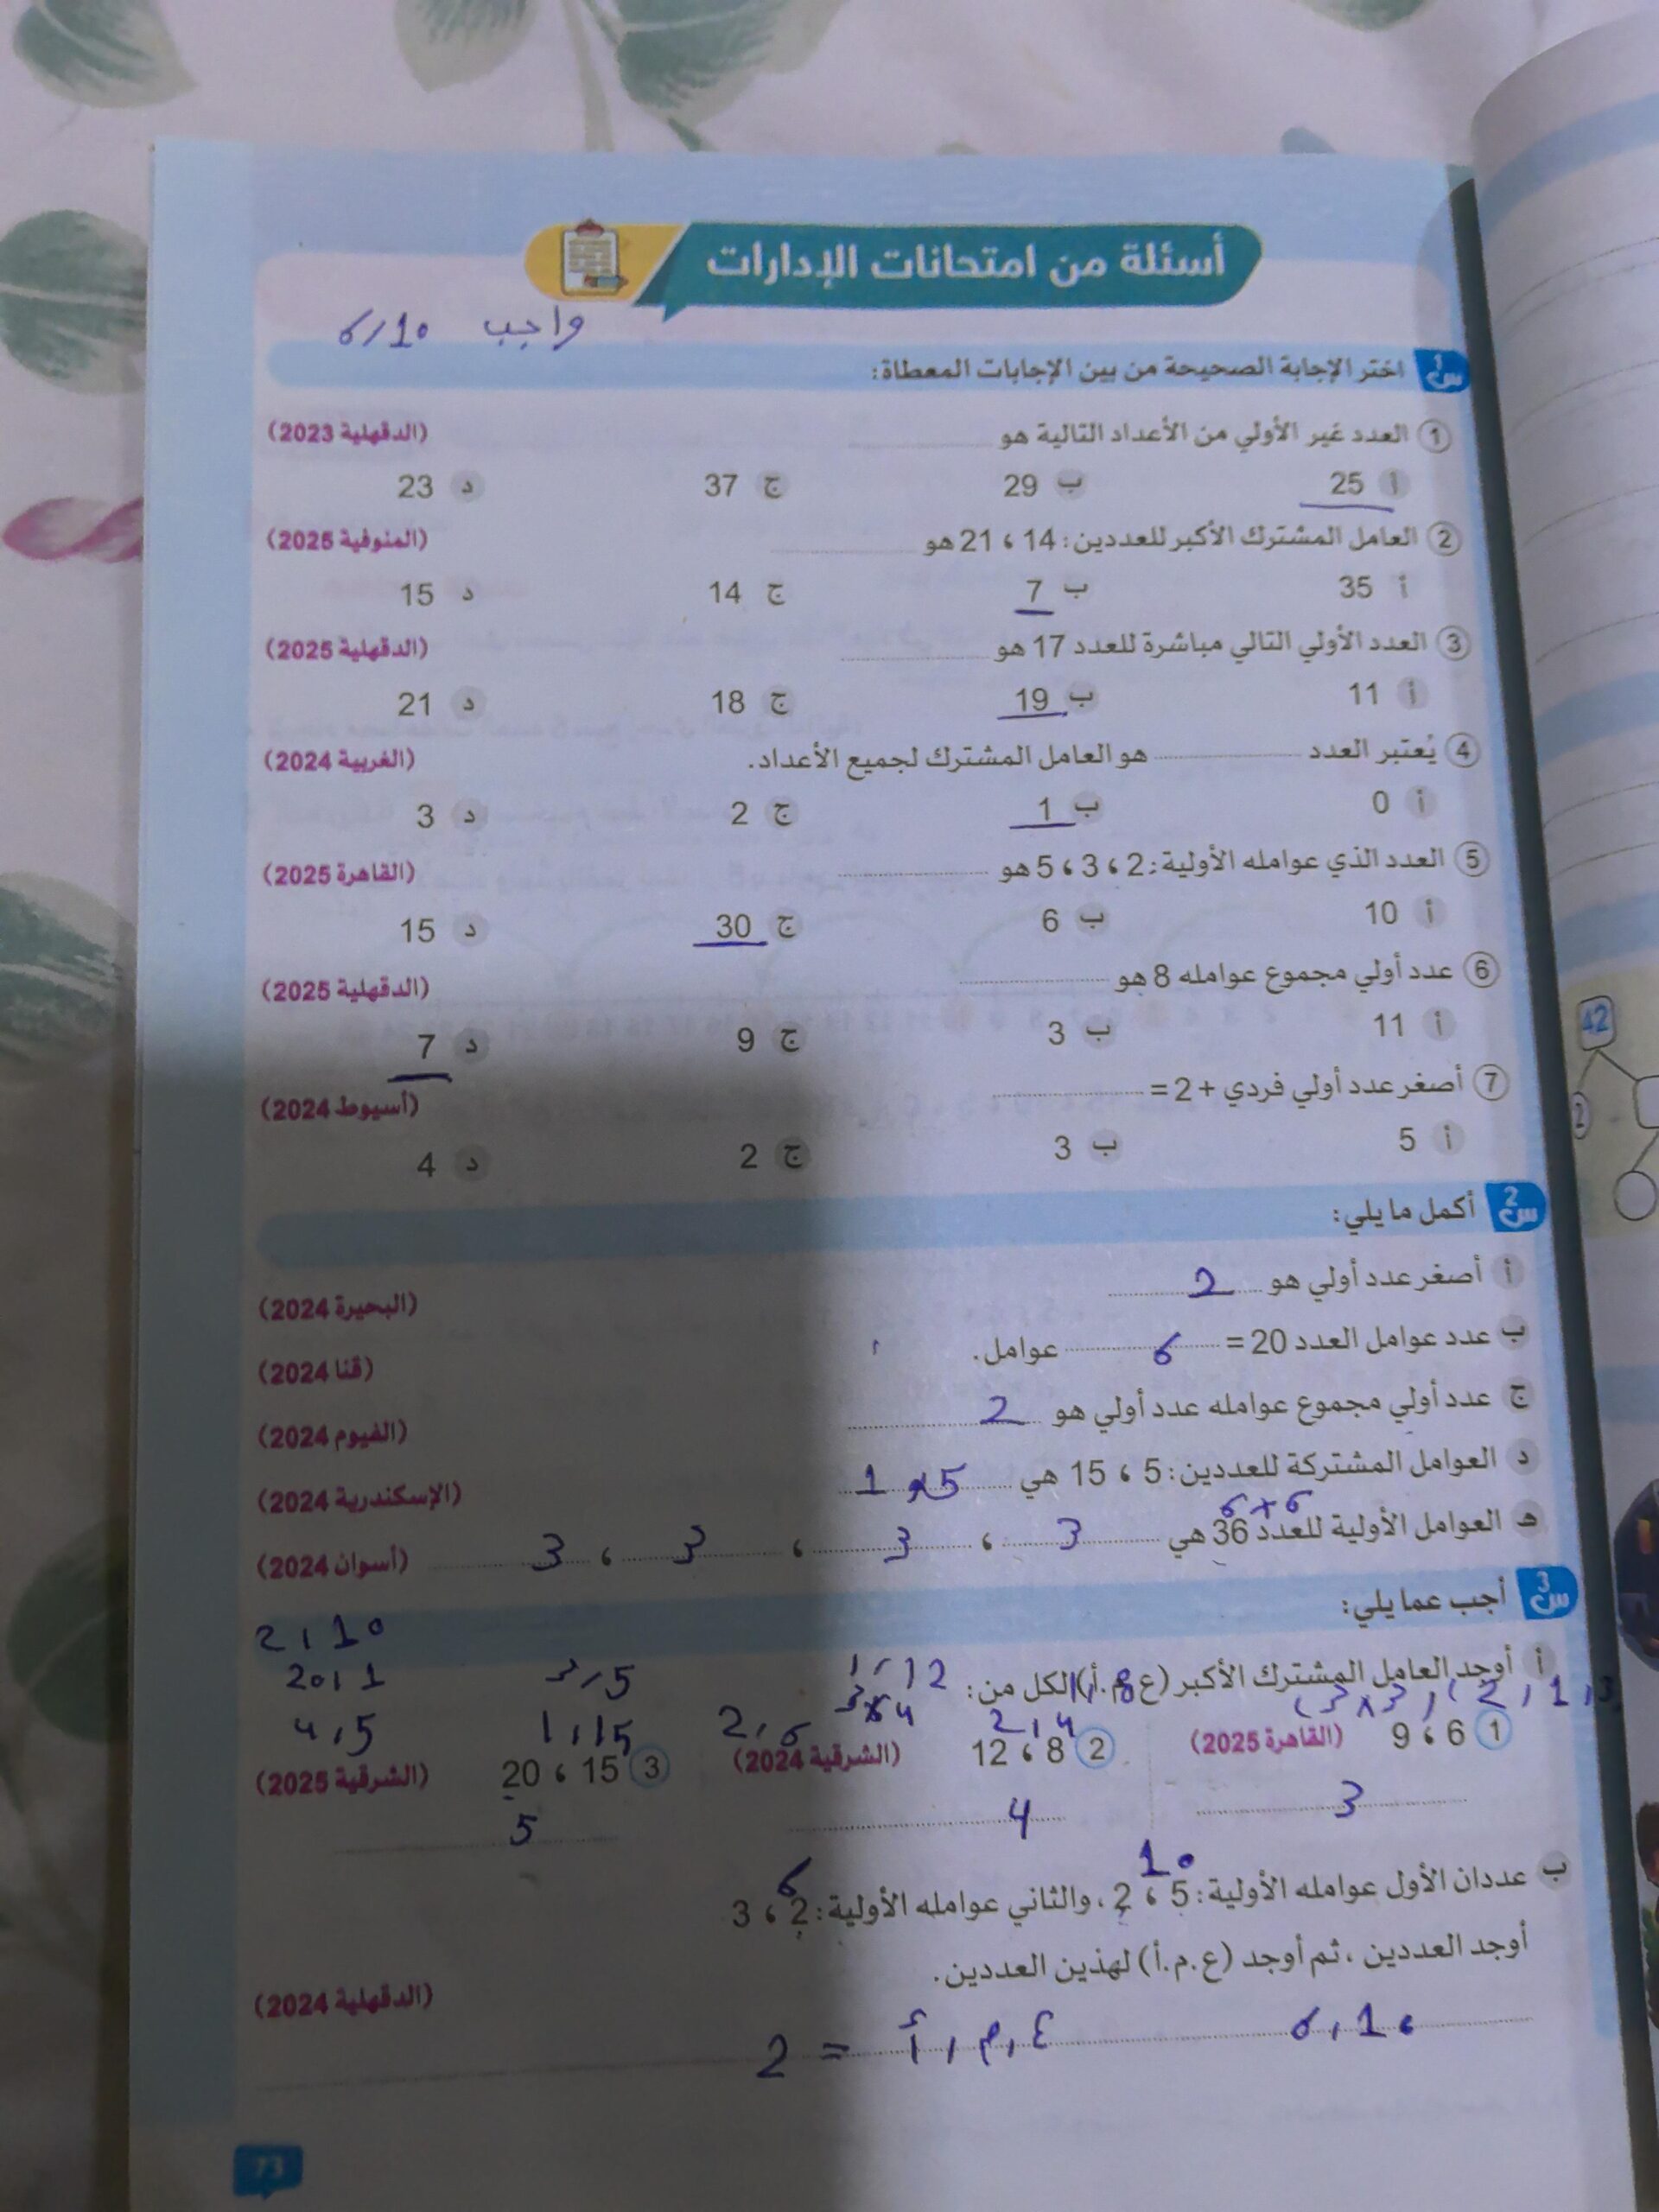 أسئلة من امتحانات الإدارات
واجب 6/10
س1 اختر الإجابة الصحيحة من بين الإجابات المعطاة:
1 العدد غير الأولي من الأعداد التالية هو (الدقهلية 2023)
أ 25 ب 29 ج 37 د 23
2 العامل المشترك الأكبر للعددين: 14 ، 21 هو (المنوفية 2025)
أ 35 ب 7 ج 14 د 15
3 العدد الأولي التالي مباشرة للعدد 17 هو (الدقهلية 2025)
أ 11 ب 19 ج 18 د 21
4 يُعتبر العدد هو العامل المشترك لجميع الأعداد. (الغربية 2024)
أ 0 ب 1 ج 2 د 3
5 العدد الذي عوامله الأولية: 2 ، 3 ، 5 هو (القاهرة 2025)
أ 10 ب 6 ج 30 د 15
6 عدد أولي مجموع عوامله 8 هو (الدقهلية 2025)
أ 11 ب 3 ج 9 د 7
7 أصغر عدد أولي فردي + 2 = (أسيوط 2024)
أ 5 ب 3 ج 2 د 4
س2 أكمل ما يلي:
أ أصغر عدد أولي هو 2 (البحيرة 2024)
ب عدد عوامل العدد 20 = 6 عوامل. (قنا 2024)
ج عدد أولي مجموع عوامله عدد أولي هو 2 (الفيوم 2024)
د العوامل المشتركة للعددين: 5 ، 15 هي 1 5 (الإسكندرية 2024)
6×6
هـ العوامل الأولية للعدد 36 هي 3 ، 3 ، 3 ، 3 (أسوان 2024)
س3 أجب عما يلي:
2,10
أ أوجد العامل المشترك الأكبر (ع.م.أ) لكل من: 1,12 3,5 20,1
2,4 2,6 1,15 4,5
1 6 ، 9 (القاهرة 2025) 2 8 ، 12 (الشرقية 2024) 3 15 ، 20 (الشرقية 2025)
3 4 5
10 6
ب عددان الأول عوامله الأولية: 5 ، 2 ، والثاني عوامله الأولية: 2 ، 3
أوجد العددين ، ثم أوجد (ع.م.أ) لهذين العددين. (الدقهلية 2024)
6,10 ع,م,أ = 2
73
42
2